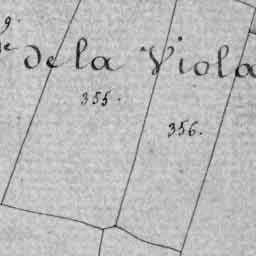 de la Viola
355.
356.